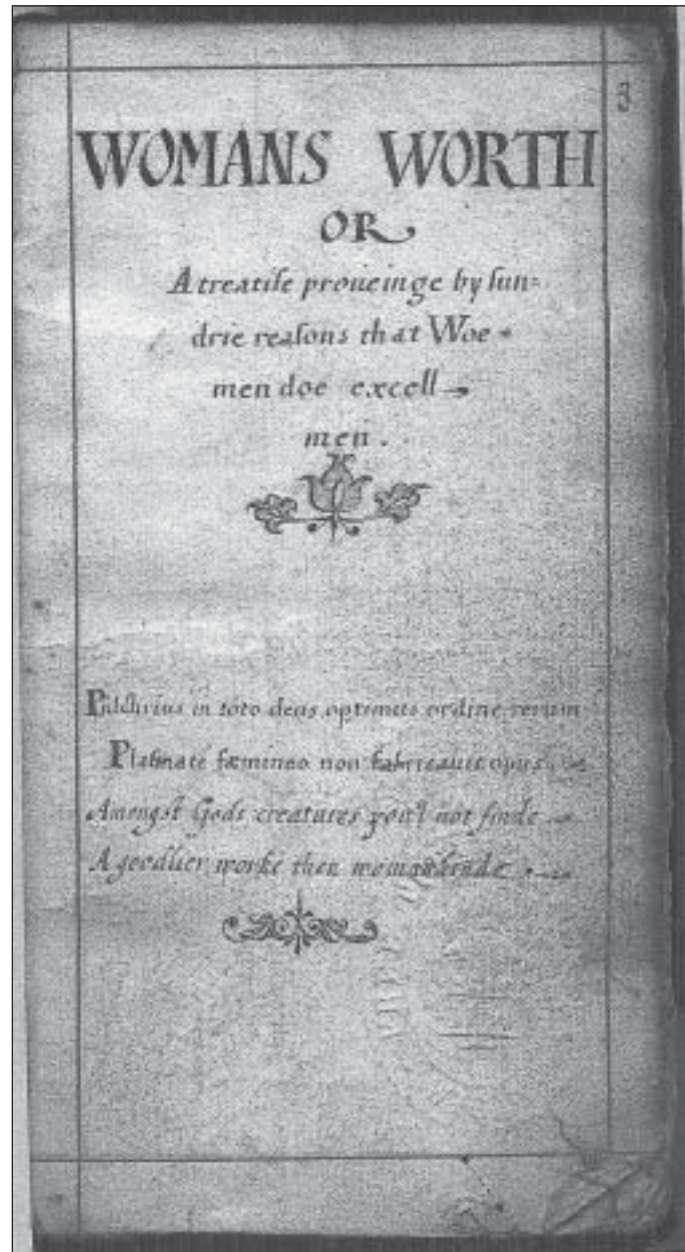 3
WOMANS WORTH
OR
A treatiſe proueinge by ſun=
drie reaſons that Woe
men doe excell
men.
Pulchrius in toto deus optimus ordine rerum
Plaſmate fœmineo non fabricauit opus.
Amongst Gods creatures you'l not finde
A goodlier worke then womankinde.